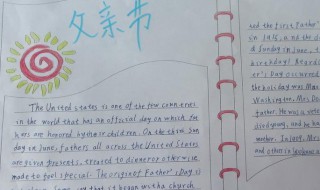 父亲节
The United States is one of the few countries
in the world that has an official day on which fat
hers are honored by their children. On the third Sun
day in June, fathers all across the United States
are given presents, treated to dinner or otherwise
made to feel special. The origin of Father's Day is
that it began with a church
ed the first Father
in 1915, and the
d Sunday in June,
birthday!
er's Day occurred
the holiday was Mrs.
Washington, Mrs. Do
father. He was a vete
died young, and he ha
mother. In 1909, Mrs
and others in